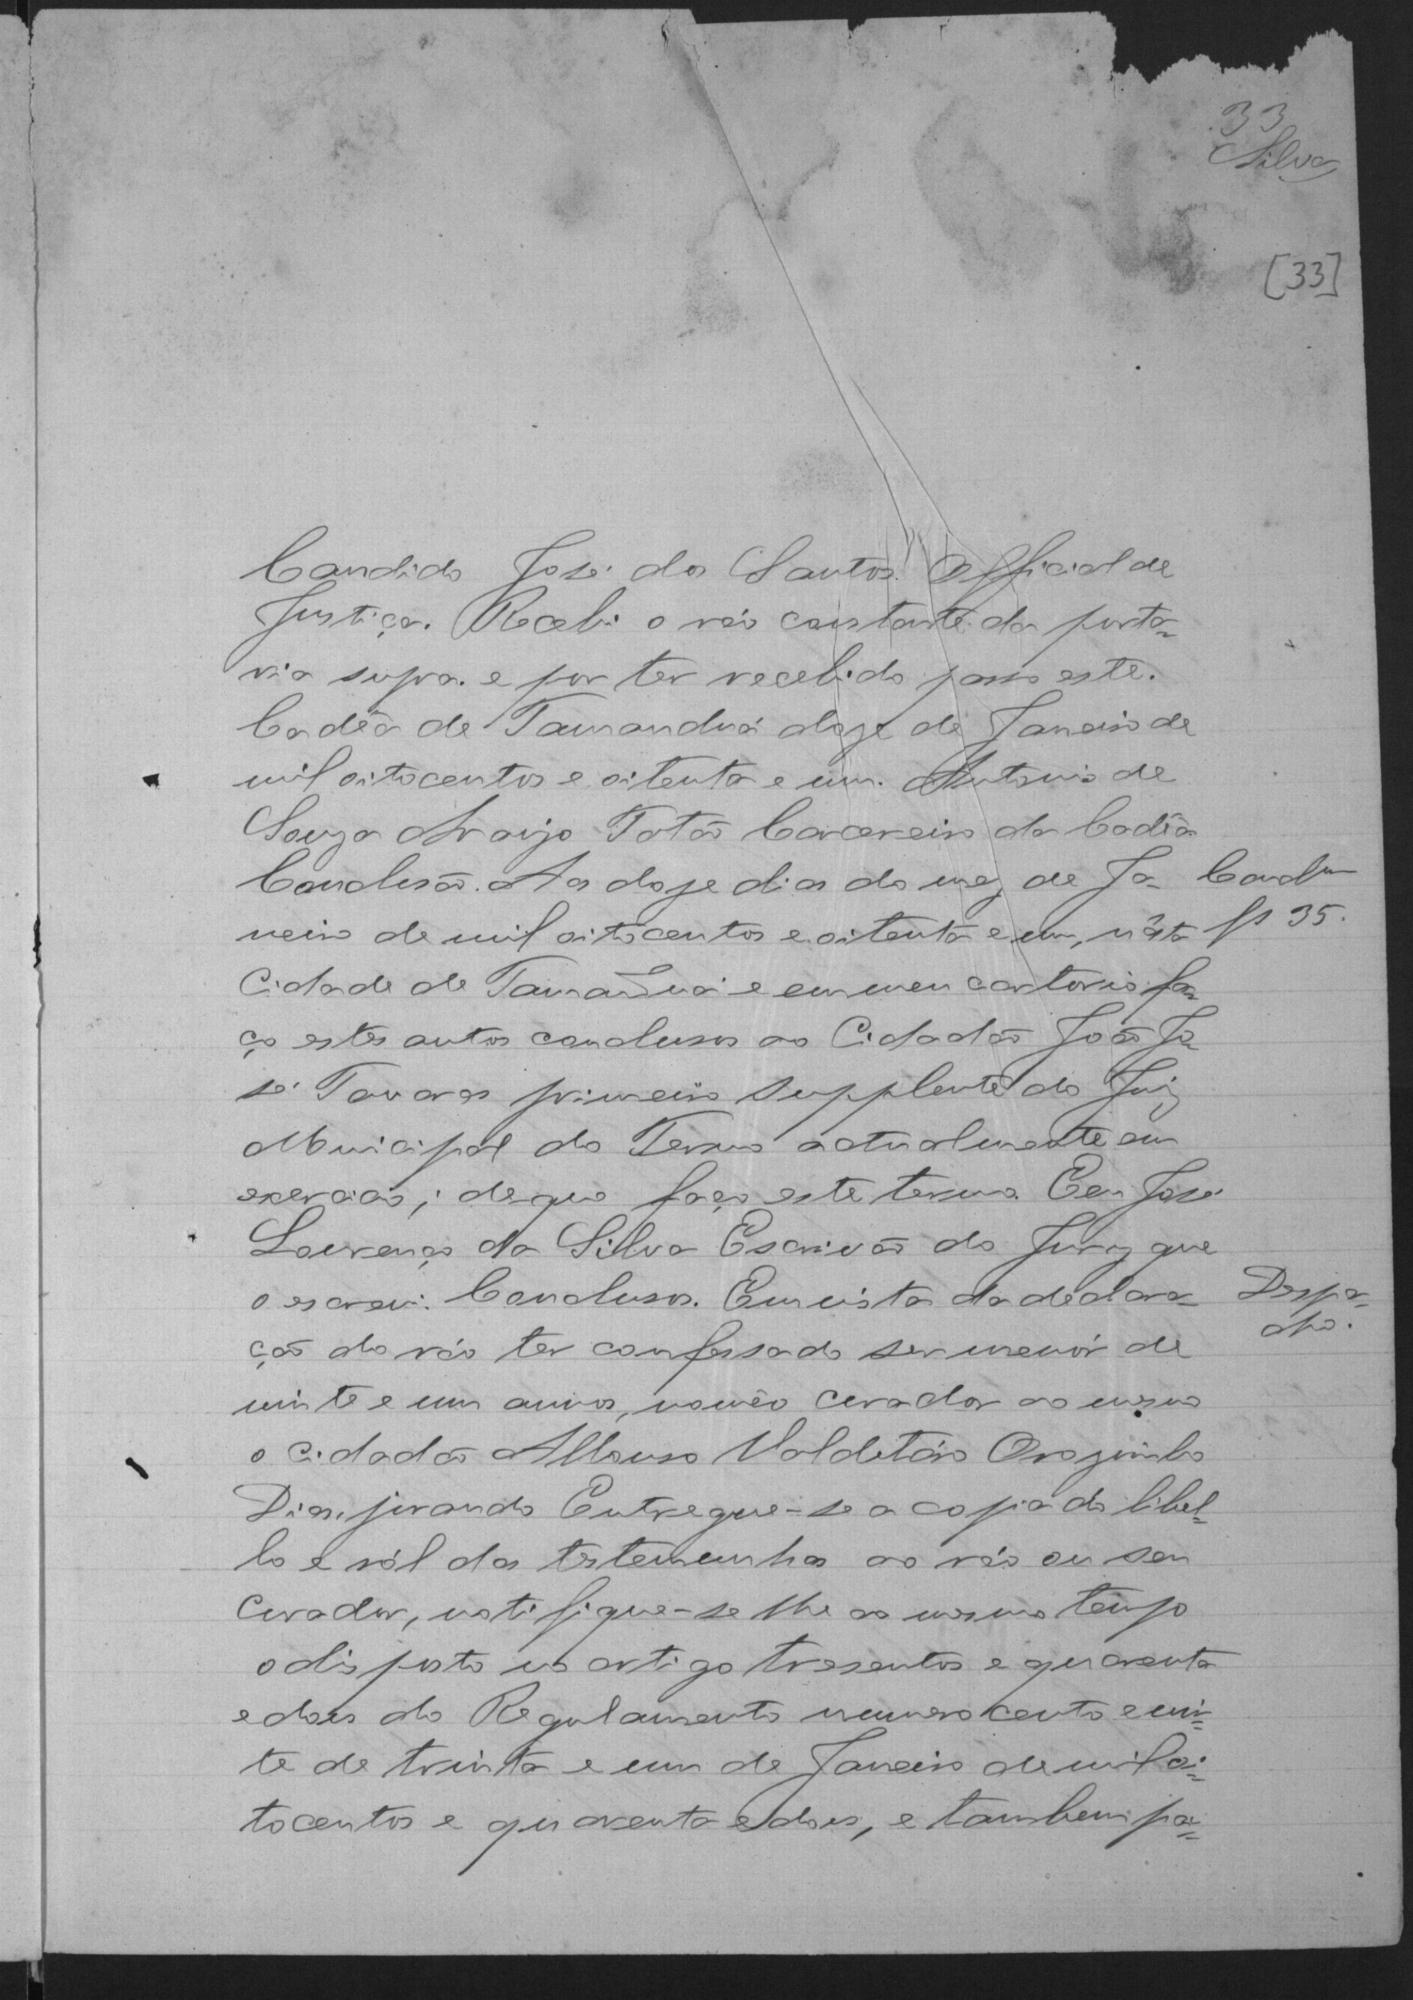 33
Silva
[33]
Candido José dos Santos. Official de
Justiça. Recebi o réo constante da porta-
ria supra. e por ter recebido passo este.
Cadêa de Tamanduá doze de Janeiro de
mil oitocentos e oitenta e um. Antonio de
Souza Araujo Totão Carcereiro da Cadêa
Conclusão. Aos doze dias do mez de Ja- Concl.m
neiro de mil oitocentos e oitenta e um, n'esta fs 35.
Cidade de Tamanduá e em meu cartorio fa-
ço estes autos conclusos ao Cidadão João Jo-
sé Tavares primeiro supplente do Juiz
Municipal do Termo actualmente em
exercicio; de que faço este termo. Eu José
Lourenço da Silva Escrivão do Jury que
o escrevi. Conclusos. Em vista da declara- Despa-
ção do réo ter confessado ser menór de cho.
vinte e um annos, nomêo curador ao mesmo
o cidadão Affonso Valdetáro Orozimbo
Dias, jurando Entregue-se a copia do libel-
lo e ról das testemunhas ao réo ou seu
Curador, notifique-se lhe ao mesmo tempo
o disposto no artigo tresentos e quarenta
e dois do Regulamento numero cento e vin-
te de trinta e um de Janeiro de mil oi-
tocentos e quarenta e dois, e tambem pa-